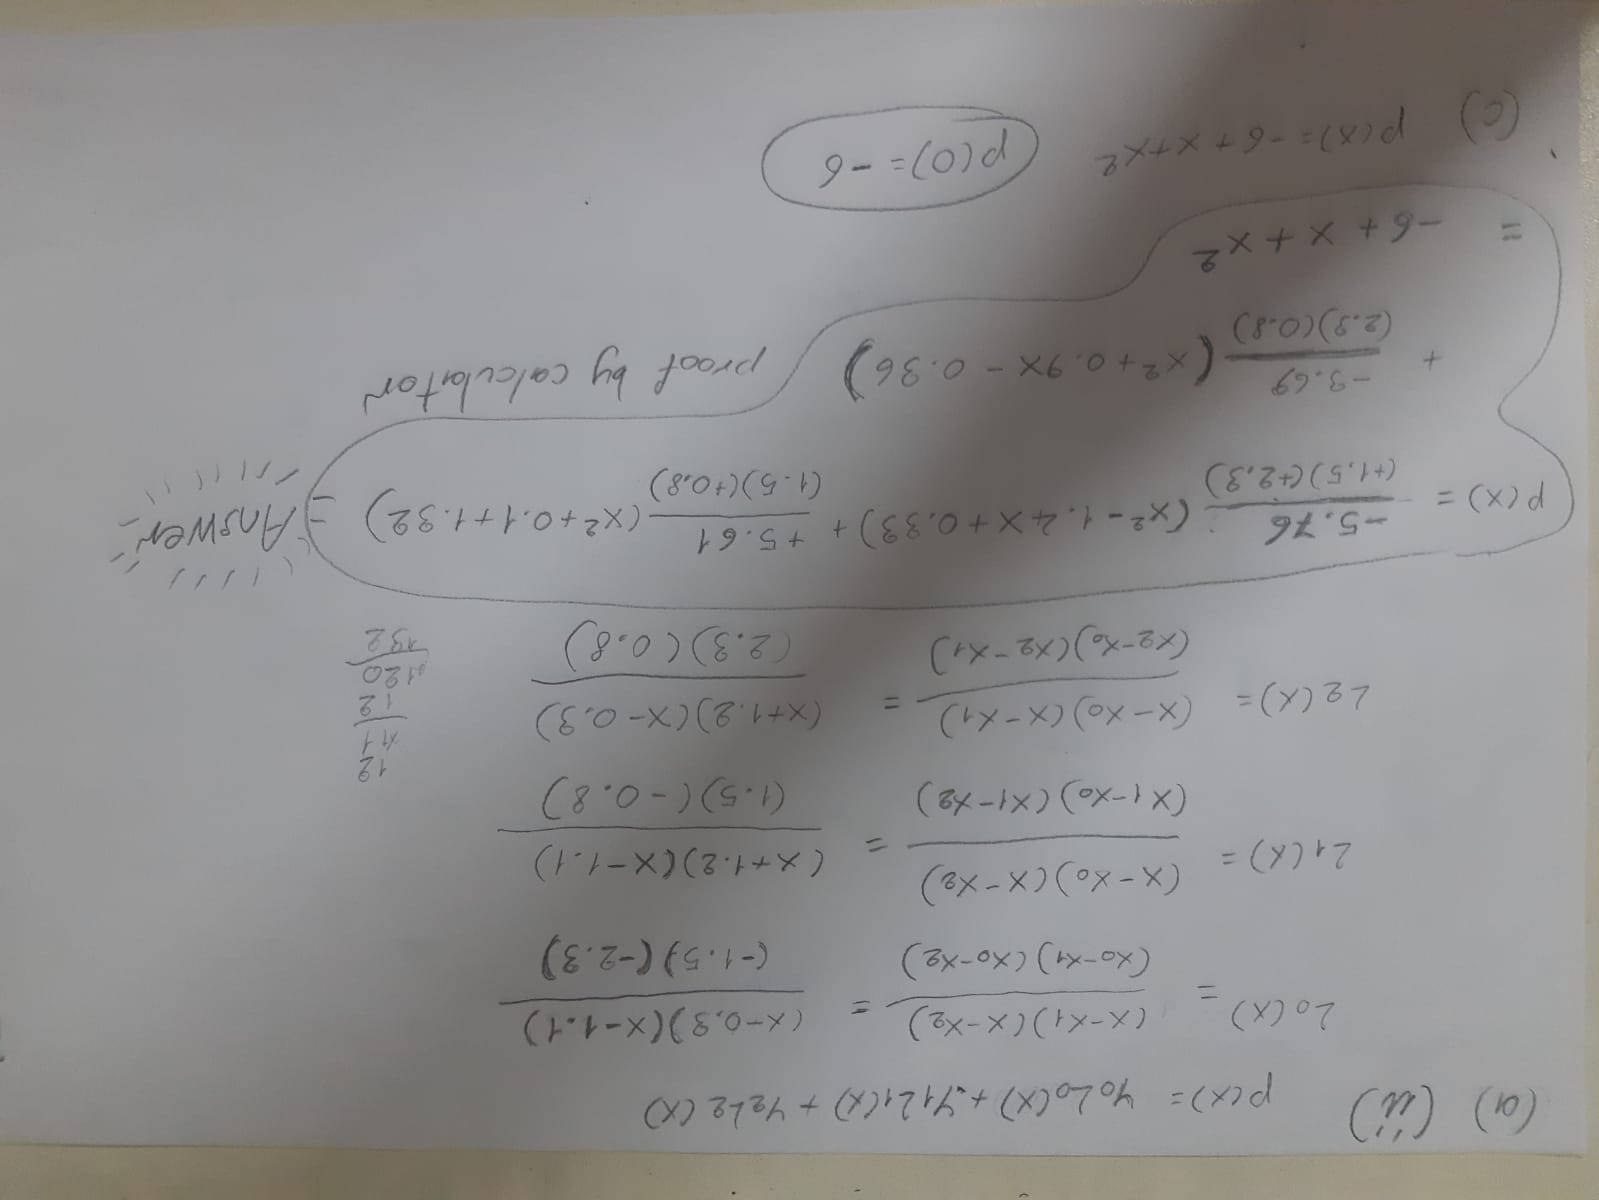 (a) (ii) p(x) = y0L0(x) + y1L1(x) + y2L2(x)
L0(x) = (x-x1)(x-x2) / (x0-x1)(x0-x2) = (x-0.3)(x-1.1) / (-1.5)(-2.3)
L1(x) = (x-x0)(x-x2) / (x1-x0)(x1-x2) = (x+1.2)(x-1.1) / (1.5)(-0.8)
12
x11
12
120
132
L2(x) = (x-x0)(x-x1) / (x2-x0)(x2-x1) = (x+1.2)(x-0.3) / (2.3)(0.8)
p(x) = -5.76 / (+1.5)(+2.3) (x²-1.4x+0.33) + +5.61 / (1.5)(+0.8) (x²+0.1+1.32) = Answer
+ -3.69 / (2.3)(0.8) (x²+0.9x-0.36) proof by calculator
= -6+x+x²
(c) p(x) = -6+x+x² p(0) = -6